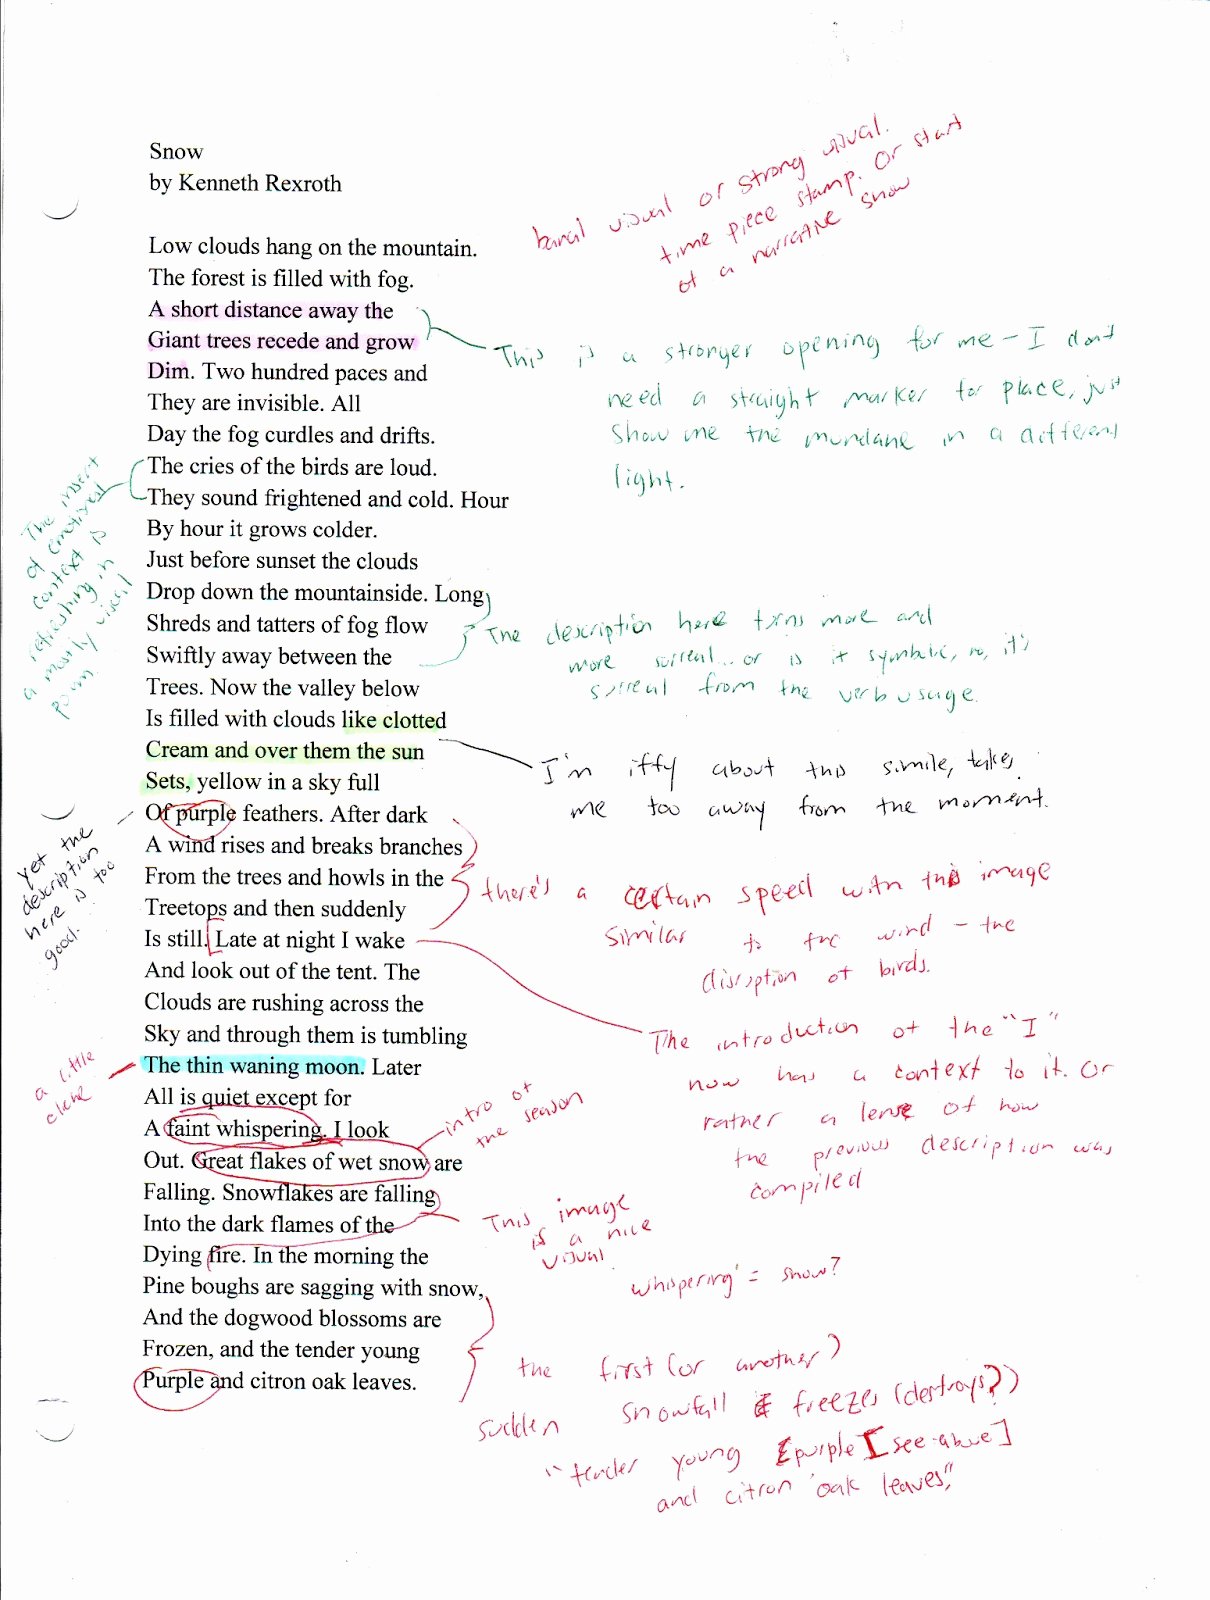 Snow
by Kenneth Rexroth
banal visual or strong visual.
time piece stamp. Or start
of a narrative snow
Low clouds hang on the mountain.
The forest is filled with fog.
A short distance away the
Giant trees recede and grow
Dim. Two hundred paces and
They are invisible. All
Day the fog curdles and drifts.
The cries of the birds are loud.
They sound frightened and cold. Hour
By hour it grows colder.
Just before sunset the clouds
Drop down the mountainside. Long
Shreds and tatters of fog flow
Swiftly away between the
Trees. Now the valley below
Is filled with clouds like clotted
Cream and over them the sun
Sets, yellow in a sky full
Of purple feathers. After dark
A wind rises and breaks branches
From the trees and howls in the
Treetops and then suddenly
Is still. Late at night I wake
And look out of the tent. The
Clouds are rushing across the
Sky and through them is tumbling
The thin waning moon. Later
All is quiet except for
A faint whispering. I look
Out. Great flakes of wet snow are
Falling. Snowflakes are falling
Into the dark flames of the
Dying fire. In the morning the
Pine boughs are sagging with snow,
And the dogwood blossoms are
Frozen, and the tender young
Purple and citron oak leaves.
This is a stronger opening for me - I dont
need a straight marker for place, just
show me the mundane in a different
light.
The insert
of emotional
context is
refreshing in
a mostly visual
poem.
The description here turns more and
more surreal... or is it symbolic, no, it's
surreal from the verb usage.
I'm iffy about this simile, takes
me too away from the moment.
Yet the
description
here is too
good.
there's a certain speed with this image
similar to the wind - the
disruption of birds.
The introduction of the "I"
now has a context to it. Or
rather a lense of how
the previous description was
compiled
a little
cliche
intro of
the season
This image
is a nice
visual
whispering = snow?
the first (or another)
sudden snowfall freezes (destroys?)
"tender young [purple [see above]
and citron oak leaves,"